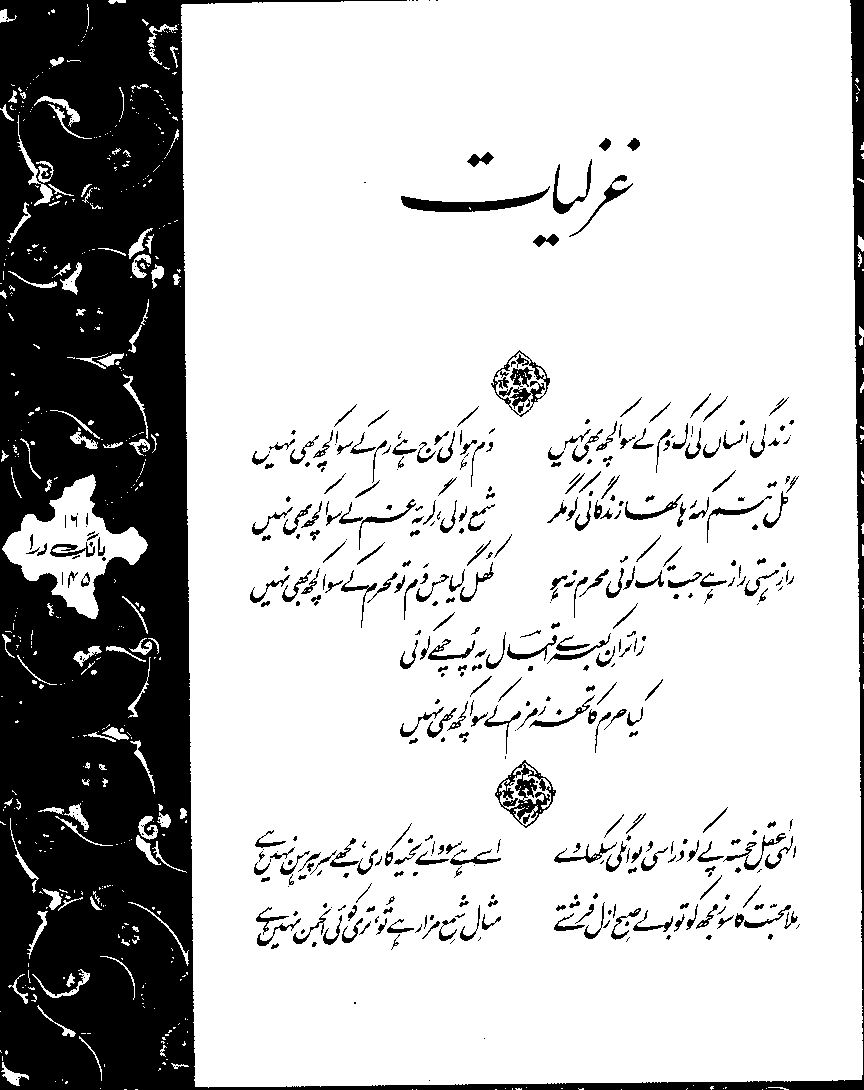 غزلیات
زندگی انساں کی اک دم کے سوا کچھ بھی نہیں دم ہوا کی موج ہے، رم کے سوا کچھ بھی نہیں
گل تبسم کہہ رہا تھا زندگانی کو مگر شمع بولی، گریۂ غم کے سوا کچھ بھی نہیں
راز ہستی راز ہے جب تک کوئی محرم نہ ہو کھل گیا جس دم تو محرم کے سوا کچھ بھی نہیں
زائران کعبہ سے اقبال یہ پوچھے کوئی
کیا حرم کا تحفہ زمزم کے سوا کچھ بھی نہیں
الٰہی عقل خجستہ پے کو ذرا سی دیوانگی سکھا دے اسے ہے سودائے بخیہ کاری، مجھے سر پیرہن نہیں ہے
ملا محبت کا سوز مجھ کو تو بولے صبح ازل فرشتے مثال شمع مزار ہے تُو، تری کوئی انجمن نہیں ہے
۱۶۱
بانگ درا
۱۴۵